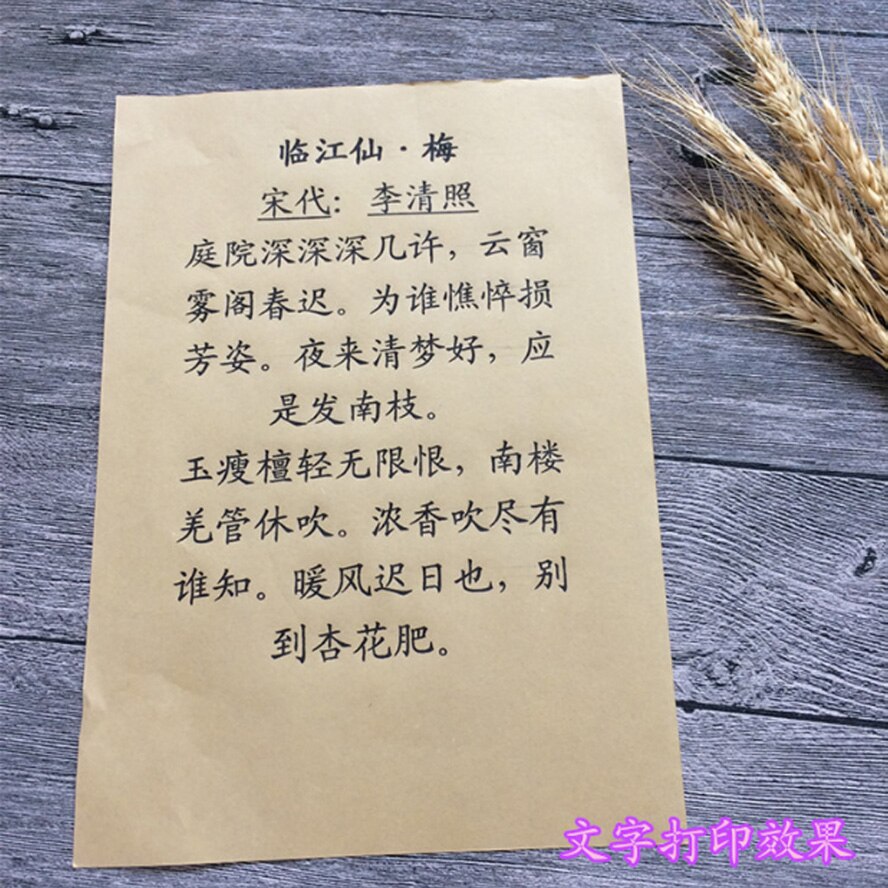 临江仙·梅
宋代：李清照
庭院深深深几许，云窗
雾阁春迟。为谁憔悴损
芳姿。夜来清梦好，应
是发南枝。
玉瘦檀轻无限恨，南楼
羌管休吹。浓香吹尽有
谁知。暖风迟日也，别
到杏花肥。
文字打印效果